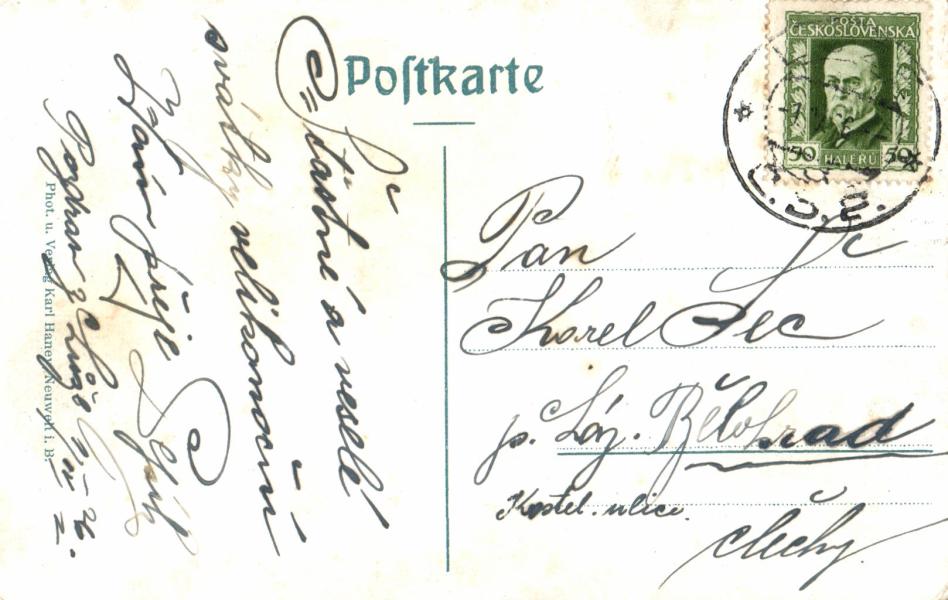 Postkarte
Šťastné a veselé
svátky velikonoční
Vám přeje
Pozdrav z
Phot. u. Verlag Karl Haney, Neuwelt i. B.
POŠTA
ČESKOSLOVENSKÁ
50 HALÉŘŮ 50
Č.S.P.
Pan
Karel Pec
p. Láz. Bělohrad
Kostel. ulice.
Čechy